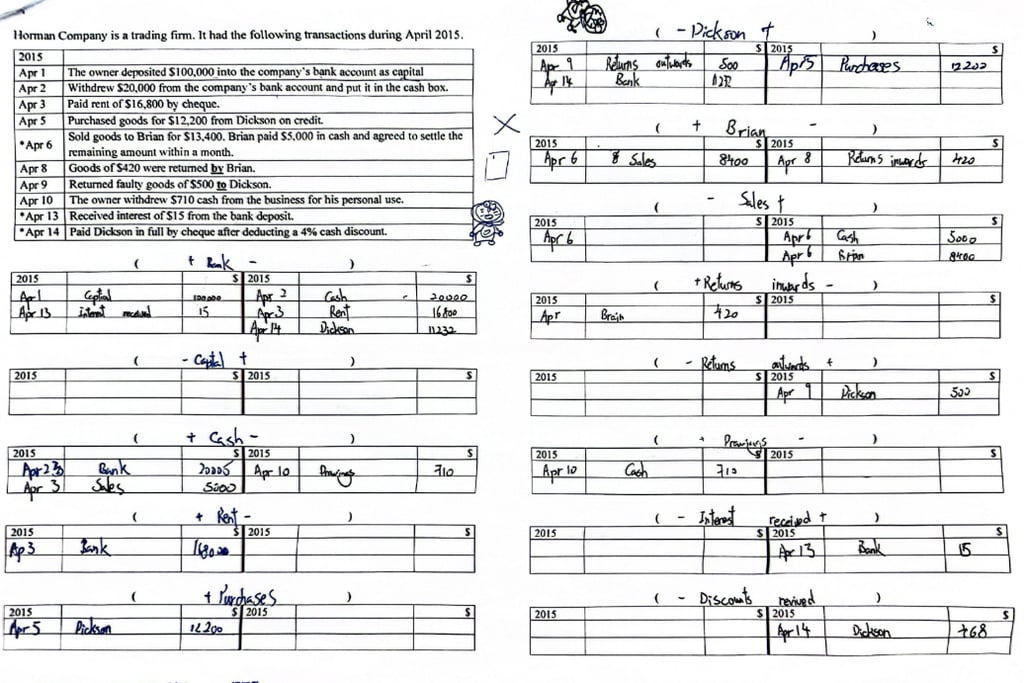 Horman Company is a trading firm. It had the following transactions during April 2015.
2015
Apr 1 The owner deposited $100,000 into the company's bank account as capital
Apr 2 Withdrew $20,000 from the company's bank account and put it in the cash box.
Apr 3 Paid rent of $16,800 by cheque.
Apr 5 Purchased goods for $12,200 from Dickson on credit.
*Apr 6 Sold goods to Brian for $13,400. Brian paid $5,000 in cash and agreed to settle the
remaining amount within a month.
Apr 8 Goods of $420 were returned by Brian.
Apr 9 Returned faulty goods of $500 to Dickson.
Apr 10 The owner withdrew $710 cash from the business for his personal use.
*Apr 13 Received interest of $15 from the bank deposit.
*Apr 14 Paid Dickson in full by cheque after deducting a 4% cash discount.
( + Bank - )
2015 $ 2015 $
Ap 1 Captial 100000 Apr 2 Cash 20000
Apr 13 Interest received 15 Apr 3 Rent 16800
Apr 14 Dickson 11232
( - Capital + )
2015 $ 2015 $
( + Cash - )
2015 $ 2015 $
Apr 2 Bank Apr 10 Drawings 710
Apr 3 Sales 5000
( + Rent - )
2015 $ 2015 $
Ap 3 Bank
( + Purchases )
2015 $ 2015 $
Apr 5 Dickson 12200
( - Dickson + )
2015 $ 2015 $
Apr 9 Returns outwards 500 Apr 5 Purchases
Apr 14 Bank
( + Brian - )
2015 $ 2015 $
Apr 6 Sales 8400 Apr 8 Returns inwards 420
( - Sales + )
2015 $ 2015 $
Apr 6 Apr 6 Cash 5000
Apr 6 Brian 8400
( + Returns inwards - )
2015 $ 2015 $
Apr Brain 420
( - Returns outwards + )
2015 $ 2015 $
Apr 9 Dickson 500
( + Drawings - )
2015 $ 2015 $
Apr 10 Cash 710
( - Interest received + )
2015 $ 2015 $
Apr 13 Bank 15
( - Discounts revived )
2015 $ 2015 $
Apr 14 Dickson 468